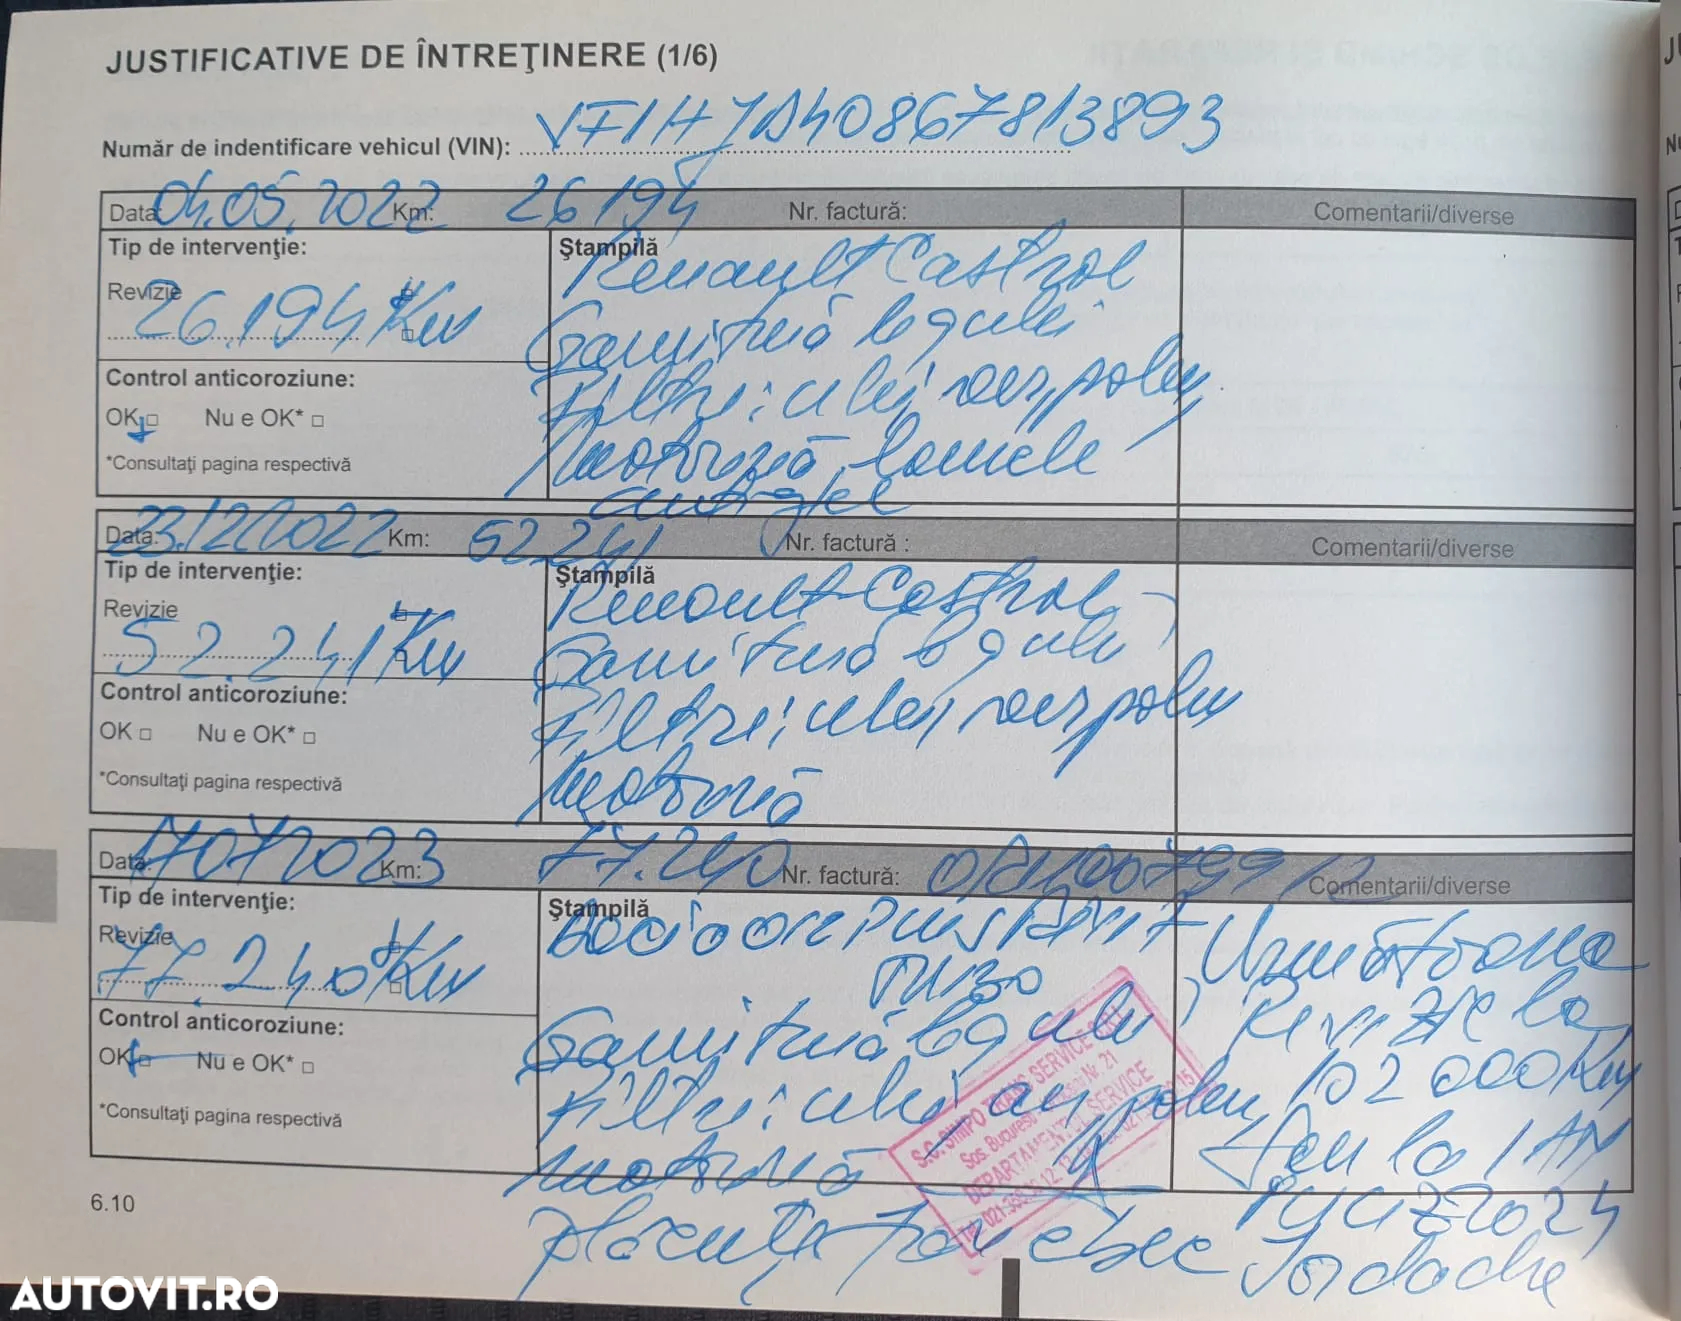 JUSTIFICATIVE DE ÎNTREŢINERE (1/6)
Număr de indentificare vehicul (VIN):
Data: 04.05.2022 Km: 26194 Nr. factură: Comentarii/diverse
Tip de intervenţie:
Ştampilă
Renault Castrol
Revizie
26.194 Km
Garnitură bgului
Filtre: ulei, aer, polen
Control anticoroziune:
OK □ Nu e OK* □
Motorină, lamele
*Consultaţi pagina respectivă
Data: 23.12.2022 Km: 52.241 Nr. factură :
Comentarii/diverse
Tip de intervenţie:
Ştampilă
Renault Castrol
Revizie
52.241 Km
Garnitură bgului
Filtre: ulei, aer, polen
Control anticoroziune:
OK □ Nu e OK* □
Motorină
*Consultaţi pagina respectivă
Data: 17072023 Km: 77.240 Nr. factură:
Comentarii/diverse
Tip de intervenţie:
Ştampilă
Revizie
77.240 Km
Garnitură bgului
Filtre: ulei aer, polen
Motorină
Control anticoroziune:
OK □ Nu e OK* □
*Consultaţi pagina respectivă
Următoarea
Revizie la
102 000 Km
sau la 1 AN
Iordache
S.C. SIMPO TRANS SERVICE SRL
Sos. Bucuresti Nr. 21
DEPARTAMENTUL SERVICE
6.10
AUTOVIT.RO